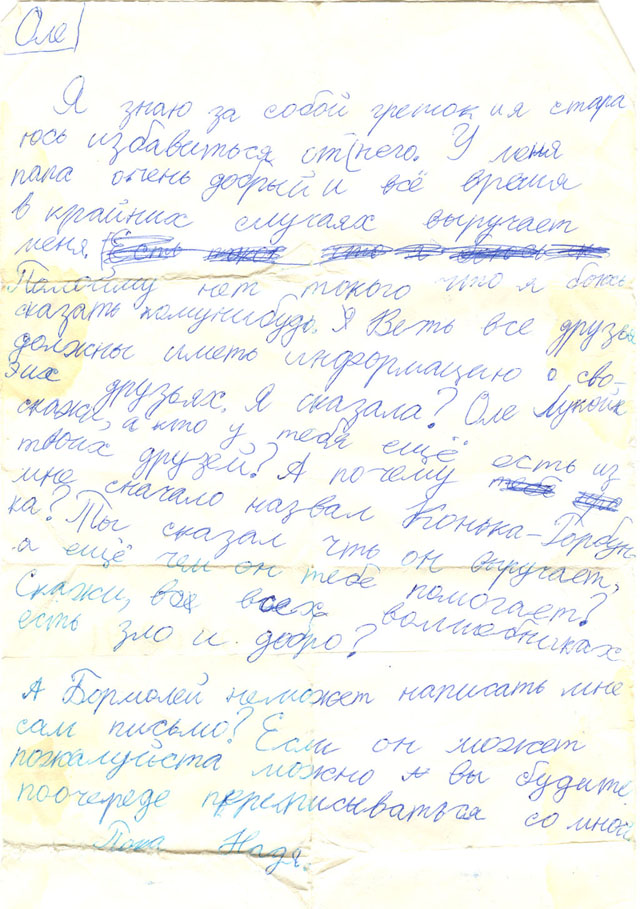 Оле!
Я знаю за собой грешок и я стара
юсь избавиться от него. У меня
папа очень добрый и всё время
в крайних случаях выручает
меня.
Помойму нет токого что я боюсь
сказать комунибудь. Я Веть все друзья
должны иметь информацию о сво-
эих друзьях. Я сказала? Оле Лукойя
скажи, а кто у тебя ещё есть из
твоих друзей? А почему
мне сначало назвал Конька-Горбун-
ка? Ты сказал что он выручает,
а ещё чем он тебе помогает?
Скажи, во всех волшебниках
есть зло и добро?
А Бормолей неможет написать мне
сам письмо? Если он может
пожалуйста можно и вы будите
поочереде переписываться со мной.
Пока Надя.